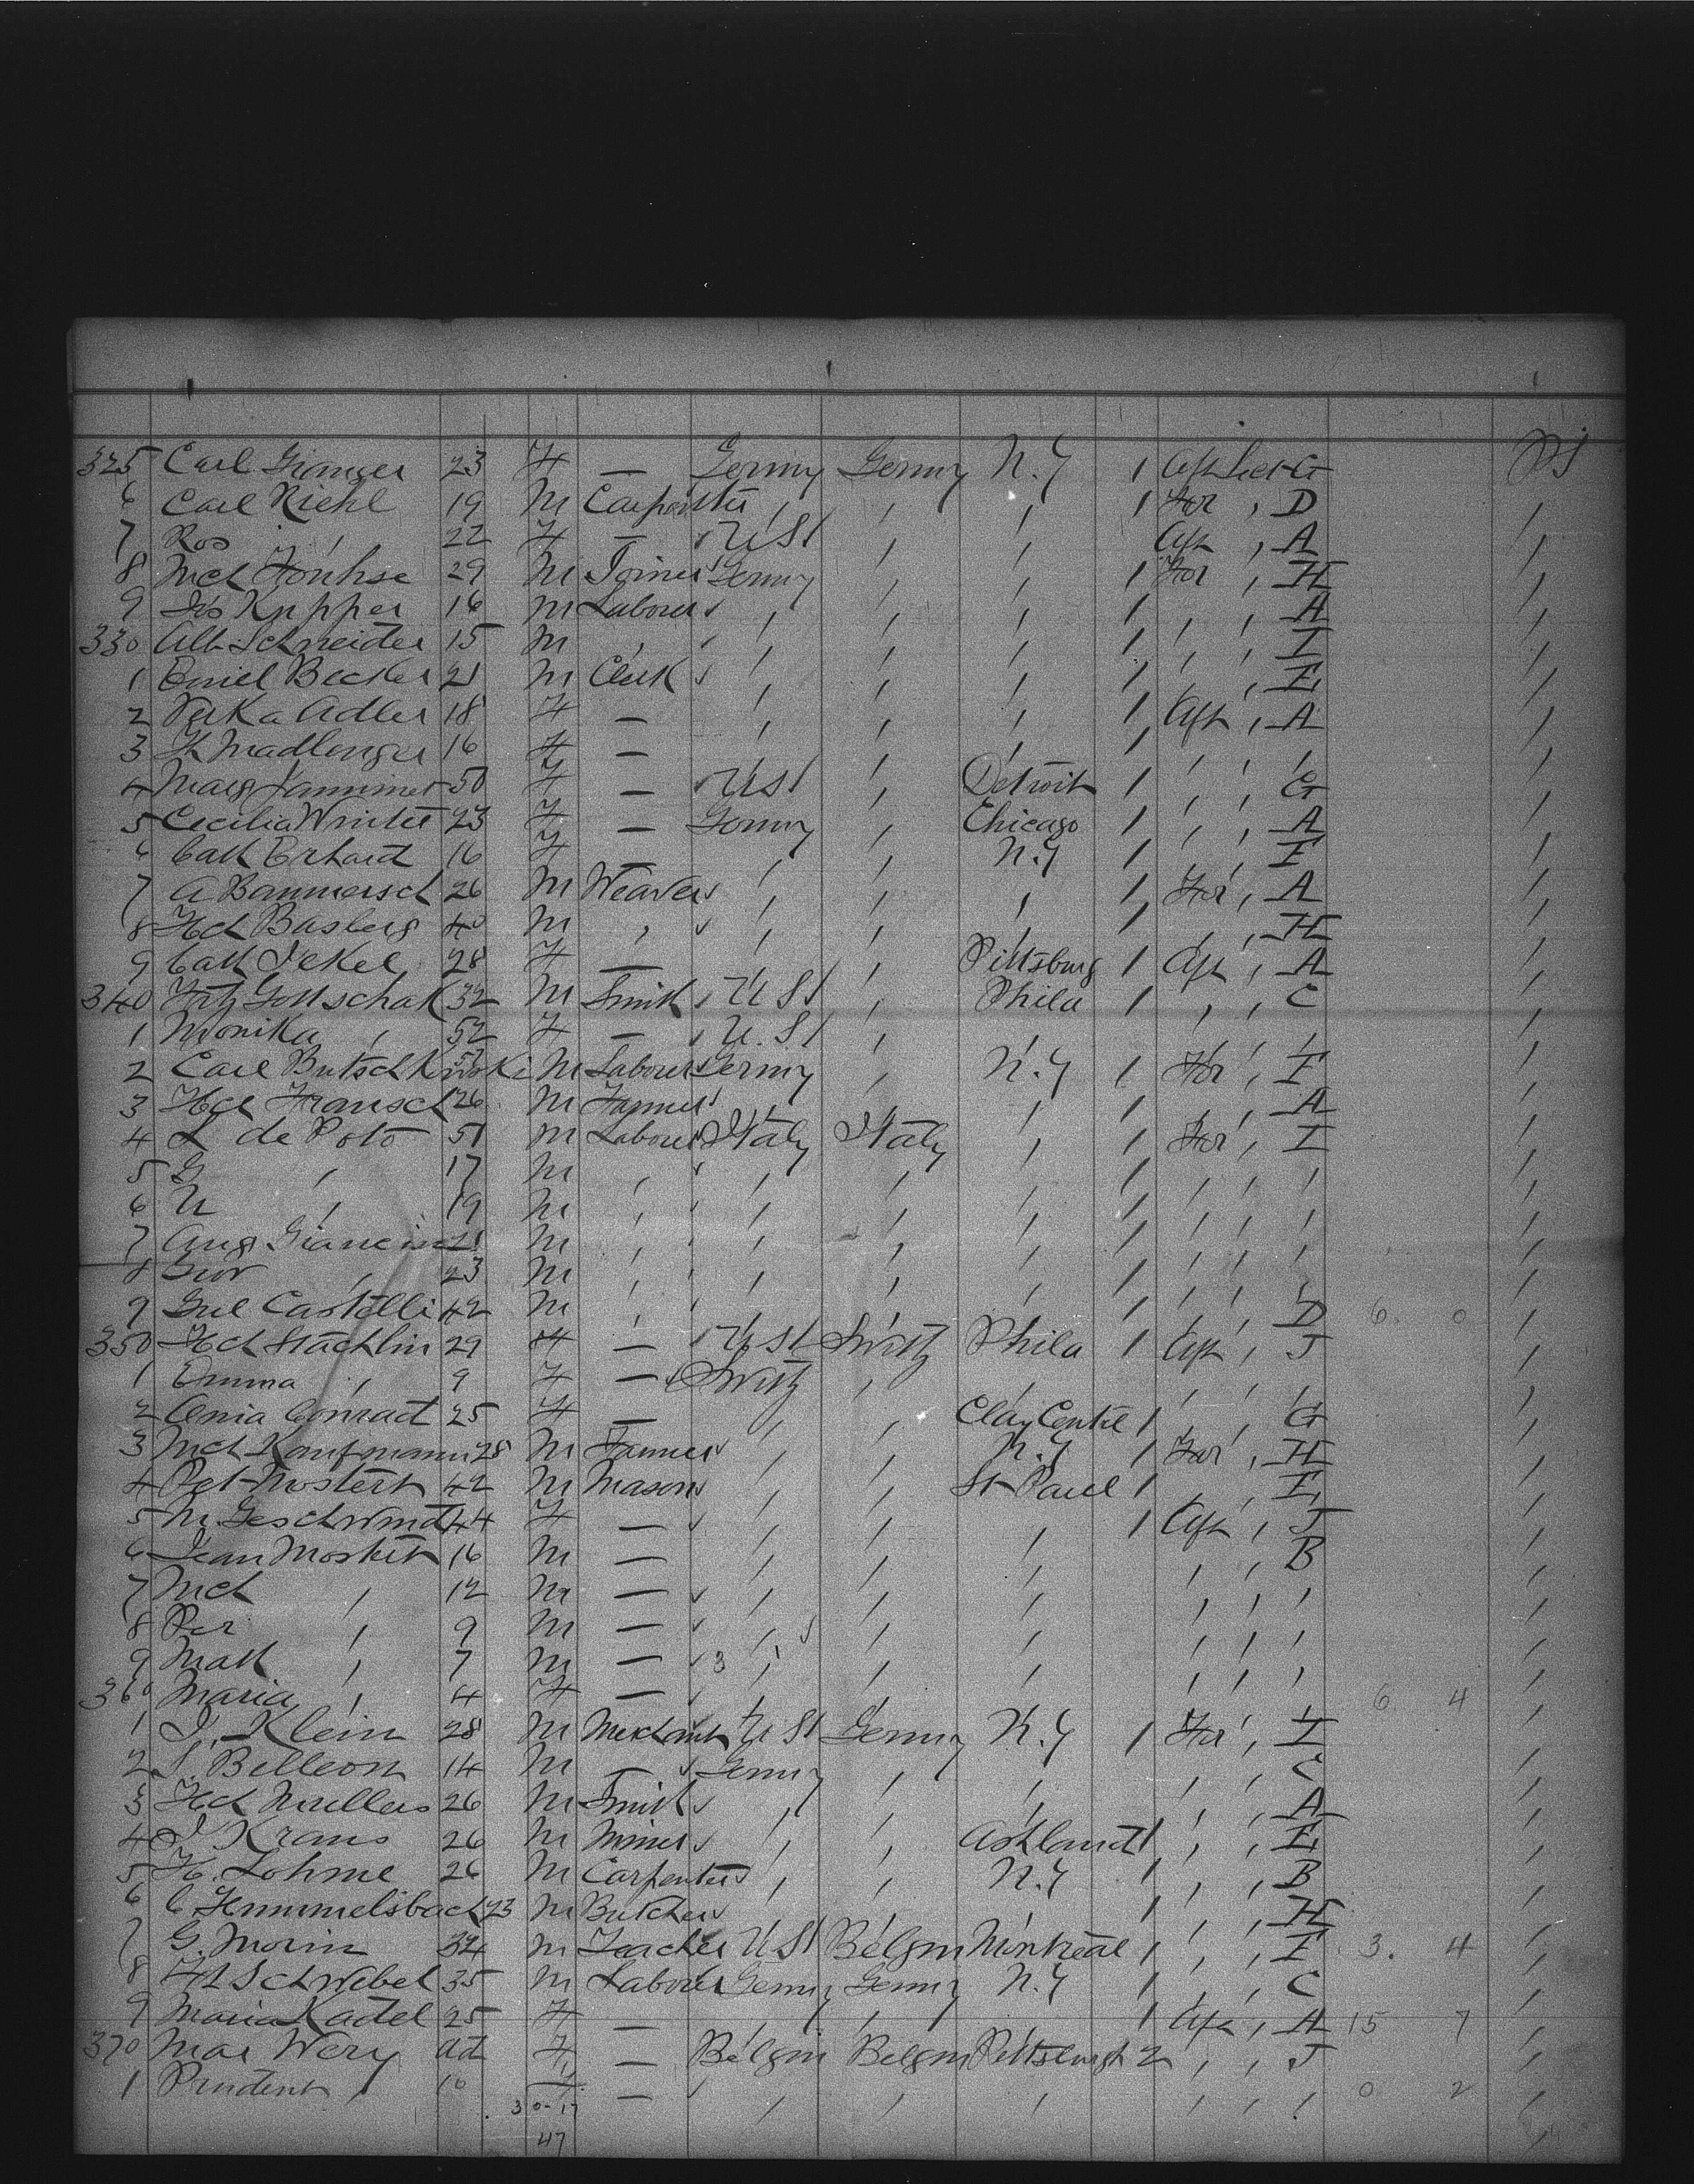 325 Carl Granger 23 F — Germy Germy N.Y 1 Aft Sect G PS
6 Carl Riehl 19 M Carpenter , , , 1 For , D ,
7 Ros , 22 F — U St , , Aft , A ,
8 Mch 29 M Joiner Germy , , 1 For , H ,
9 Jos Kupper 16 M Labourer , , , 1 , , A ,
330 Alb Schneider 15 M , , , , 1 , , I ,
1 Emiel Becker 21 M Clerk , , , 1 , , E ,
2 Adler 18 F — , , , 1 Aft , A ,
3 K Madlenger 16 F — , , , 1 , , , ,
4 Marg 50 F — U St , Detroit 1 , , G ,
5 Cecilia Winter 23 F — Germy , Chicago 1 , , A ,
6 Cath Erhard 16 F — , , N.Y 1 , , E ,
7 A Bammersch 26 M Weaver , , , 1 For , A ,
8 Hch Basberg 40 M , , , , 1 , , H ,
9 Cath Jekel 28 F — , , Pittsburg 1 Aft , A ,
340 Fritz Gottschalk 32 M Smith U St , Phila 1 , , C ,
1 Monika , 52 F — U. St , , , , , ,
2 Carl Butschkowski M Labourer Germy , N.Y 1 For , E ,
3 Hch Fransch 26 M Farmer , , , 1 , , A ,
4 L de Poto 51 M Labourer Italy Italy , 1 For , I ,
5 G , 17 M , , , , 1 , , , ,
6 N , 19 M , , , , 1 , , , ,
7 Aug 21 M , , , , 1 , , , ,
8 Giov , 23 M , , , , 1 , , , ,
9 Gul Castelli 42 M , , , , 1 , , D 6. 0 ,
350 Hch Stachlin 29 F — U St Switz Phila 1 Aft , J ,
1 Emma , 9 F — Switz , , , , , ,
2 Conrad 25 F — , , Clay Centre 1 , , G ,
3 Mch Kaufmann 28 M Farmer , , N.Y 1 For , H ,
4 Pet Mostert 42 M Mason , , St Paul 1 , , E ,
5 M Geschwind 44 F — , , , 1 Aft , J ,
6 Jean Mostert 16 M — , , , , , B ,
7 Mch , 12 M — , , , , , , ,
8 Per , 9 M — , , , , , , ,
9 Math , 7 M — 3 , , , , , , ,
360 Maria , 4 F — , , , , , , 6 4 ,
1 J. Klein 28 M Merchant U St Germy N.Y 1 For , I ,
2 S. Belleon 14 M — Germy , , , , C ,
3 Hch Muellers 26 M Smith , , , , , A ,
4 J Kraus 26 M Miner , , Ashland 1 , , E ,
5 H. Lohme 26 M Carpenter , , N.Y 1 , , B ,
6 C Hummelsbach 23 M Butcher , , , 1 , , H ,
7 G. Morin 34 M Teacher U St Belgm Montreal 1 , , E 3. 4 ,
8 Schwebel 35 M Labourer Germy Germy N.Y 1 , , C ,
9 Maria Kadel 25 F — , , , 1 Aft , A 15 7 ,
370 Mar Wery ad F — Belgm Belgm Pittsburgh 2 , , J ,
1 Prudent , 10 F — , , , , , , 0 2 ,
30-17
47